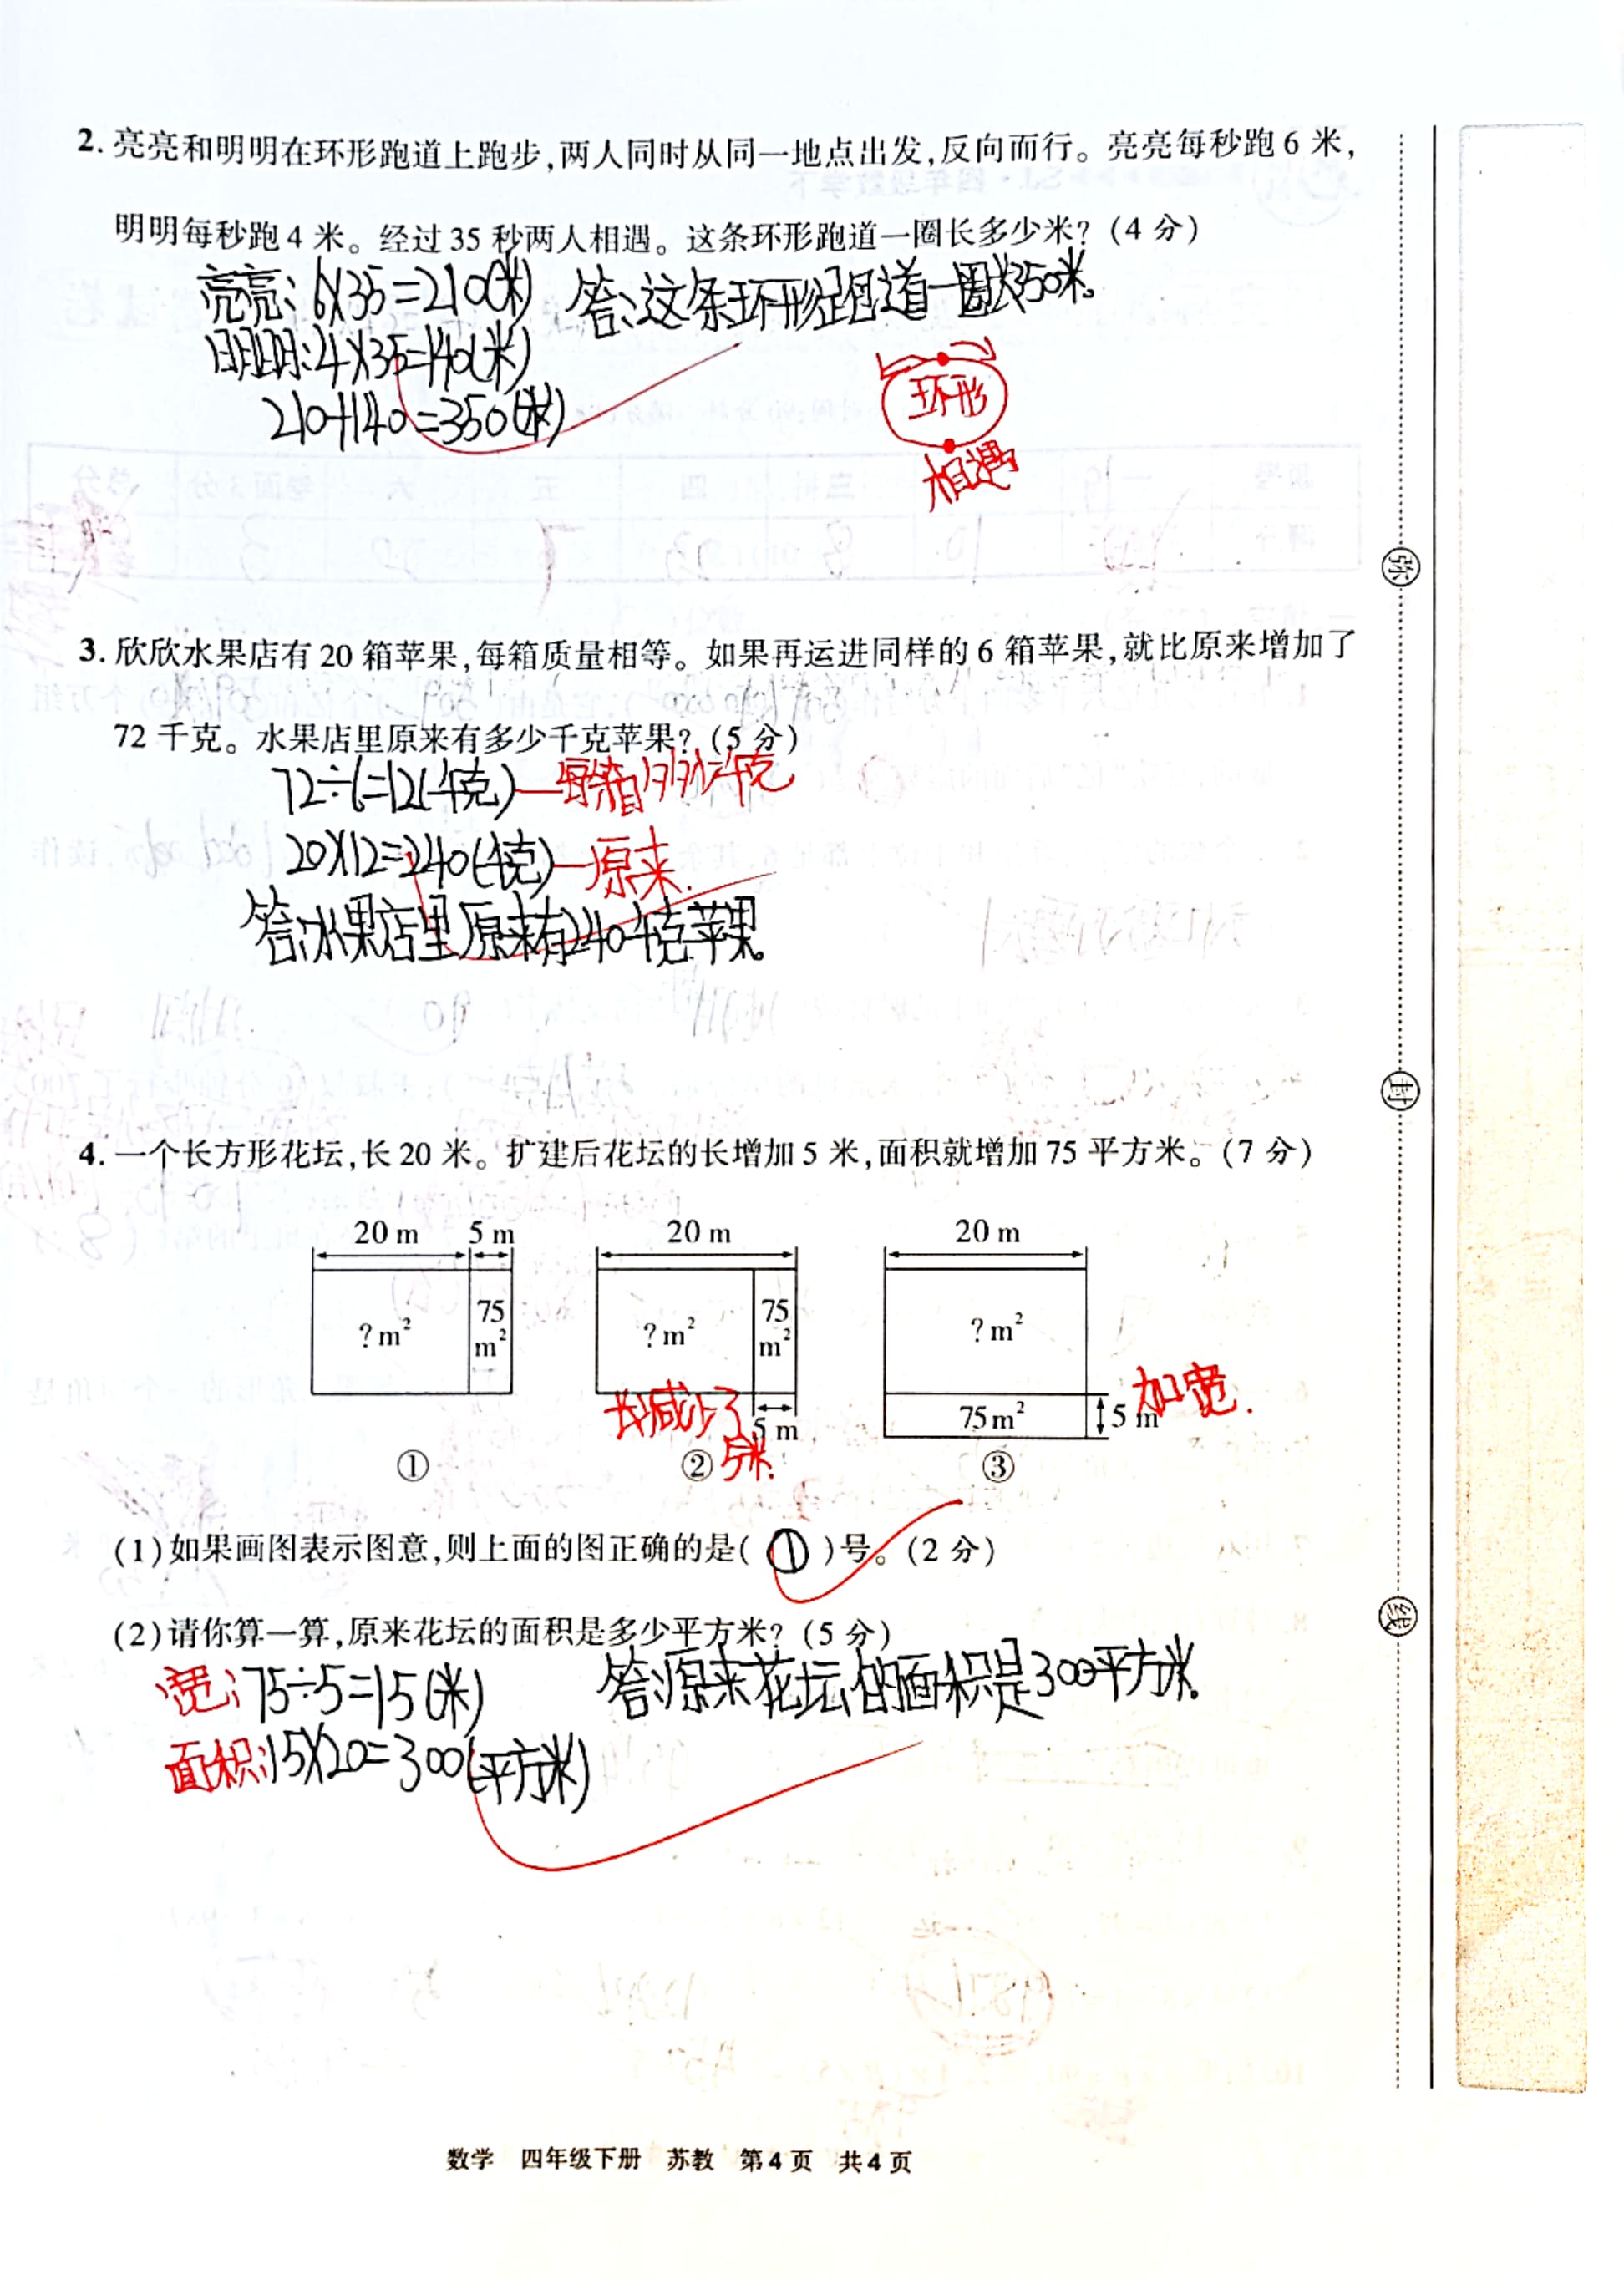 2. 亮亮和明明在环形跑道上跑步,两人同时从同一地点出发,反向而行。亮亮每秒跑6米,
明明每秒跑4米。经过35秒两人相遇。这条环形跑道一圈长多少米?(4分)
亮亮:6×35=210(米) 答:这条环形跑道一圈长350米。
明明:4×35=140(米)
210+140=350(米)
环形
相遇
3. 欣欣水果店有20箱苹果,每箱质量相等。如果再运进同样的6箱苹果,就比原来增加了
72千克。水果店里原来有多少千克苹果?(5分)
72÷6=12(千克)
20×12=240(千克)—原来.
答:水果店里原来有240千克苹果。
4. 一个长方形花坛,长20米。扩建后花坛的长增加5米,面积就增加75平方米。(7分)
20 m 5 m 20 m 20 m
?m² 75 m² ?m² 75 m² ?m²
长减少了5米. 5 m 75m² 5 m 加宽.
① ② ③
(1)如果画图表示图意,则上面的图正确的是( ① )号。(2分)
(2)请你算一算,原来花坛的面积是多少平方米?(5分)
宽:75÷5=15(米) 答:原来花坛的面积是300平方米。
面积:15×20=300(平方米)
弥
封
线
数学 四年级下册 苏教 第4页 共4页